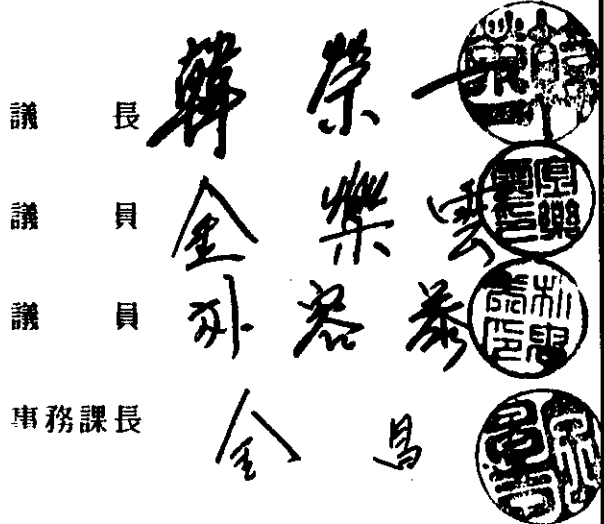 議 長 韓 榮 一
議 員 金 樂 雲
議 員 朴 容 泰
事務課長 金 昌